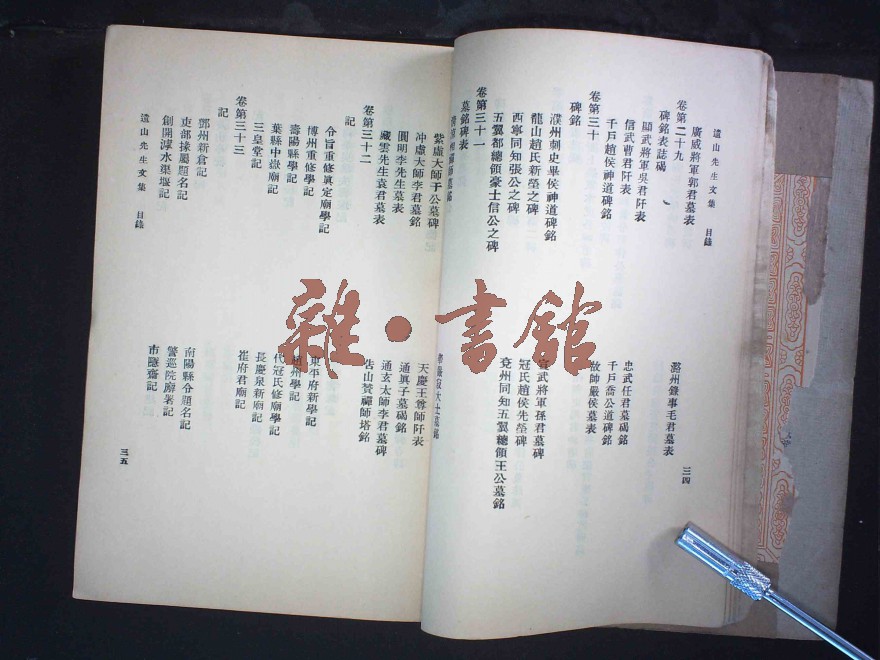 遺山先生文集 目錄
三四
廣威將軍郭君墓表
潞州錄事毛君墓表
卷第二十九
碑銘表誌碣
顯武將軍吳君阡表
忠武任君墓碣銘
信武曹君阡表
千戶喬公道碑銘
千戶趙侯神道碑銘
故帥嚴侯墓表
卷第三十
碑銘
濮州刺史畢侯神道碑銘
武將軍孫君墓碑
龍山趙氏新塋之碑
冠氏趙侯先塋碑
西寧同知張公之碑
兗州同知五翼總領王公墓銘
五翼都總領豪士信公之碑
卷第三十一
墓銘碑表
紫虛大師于公墓碑
天慶王尊師阡表
冲虛大師李君墓銘
通真子墓碣銘
圓明李先生墓表
通玄太師李君墓碑
藏雲先生袁君墓表
告山贇禪師塔銘
卷第三十二
記
令旨重修真定廟學記
東平府新學記
博州重修學記
州學記
壽陽縣學記
代冠氏修廟學記
葉縣中嶽廟記
長慶泉新廟記
三皇堂記
崔府君廟記
卷第三十三
記
鄧州新倉記
南陽縣令題名記
吏部掾屬題名記
警巡院廨署記
創開滹水渠堰記
市隱齋記
遺山先生文集 目錄
三五
雜·書館